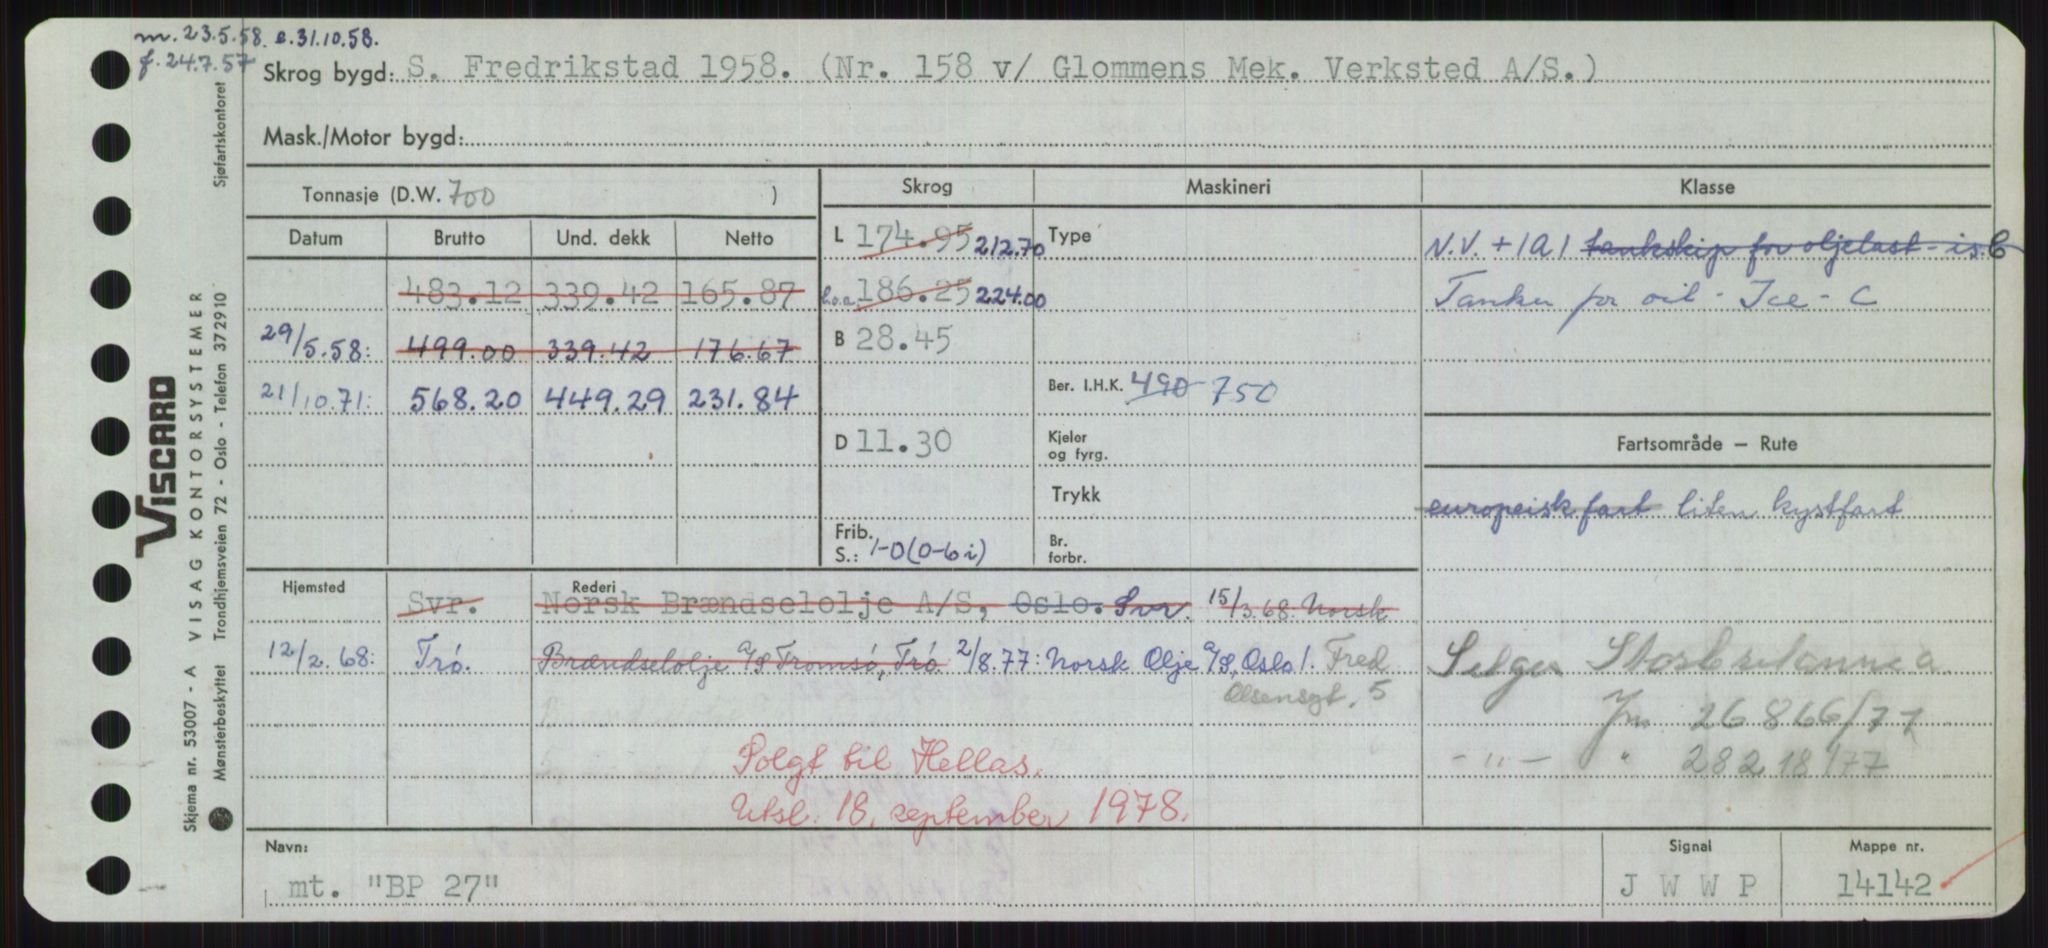 m. 23.5.58. e.31.10.58.
f. 24.7.57
Skrog bygd: S. Fredrikstad 1958. (Nr. 158 v/ Glommens Mek. Verksted A/S.)
Mask./Motor bygd:
Tonnasje (D.W. 700 )
Skrog
Maskineri
Klasse
Datum Brutto Und. dekk Netto
483.12 339.42 165.87
29/5.58: 499.00 339.42 176.67
21/10.71: 568.20 449.29 231.84
L 174.95 212.70
l.o.a. 186.25 224.00
B 28.45
D 11.30
Frib.
S.: 1-0(0-6i)
Type
Ber. I.H.K. 490 750
Kjeler
og fyrg.
Trykk
Br.
forbr.
N.V. + 1A1 tankskip for oljelast - is. C
Tanker for oil - Ice - C
Fartsområde — Rute
europeisk fart liten kystfart
Hjemsted
Rederi
Svr. Norsk Brændselolje A/S, Oslo. Svr. 15/3.68: Norsk
12/2.68: Trø. Brændselolje A/S Tromsø, Trø. 2/8.77: Norsk Olje A/S, Oslo 1. Fred
Olsensgt. 5
Solgt til Hellas.
Utsl. 18. september 1978.
Selger
Jnr. 26866/77
- " - " 28218/77
Navn:
mt. "BP 27"
Signal
J W W P
Mappe nr.
14142
VISCARD
Skjema nr. 53007 - A VISAG KONTORSYSTEMER
Mønsterbeskyttet Trondhjemsveien 72 - Oslo - Telefon 372910 Sjøfartskontoret